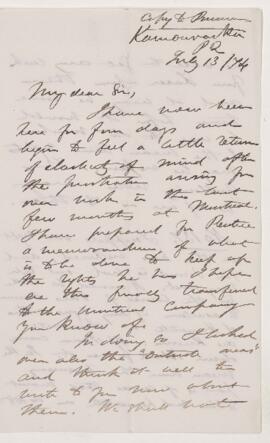 Copy to
Kamouraska
P Q
July 13/74
My dear Sir,
I have now been
here for four days and
begin to feel a little return
of elasticity of mind after
the prostration arising from
over work in the last
few months at Montreal.
I have prepared for
a memorandum of what
is to be done to keep up
the rights he has I hope
ere this finally transferred
to the Montreal Company
you know of.
In doing so I looked
over also the
and think it well to
write to you now about
them. We shall not